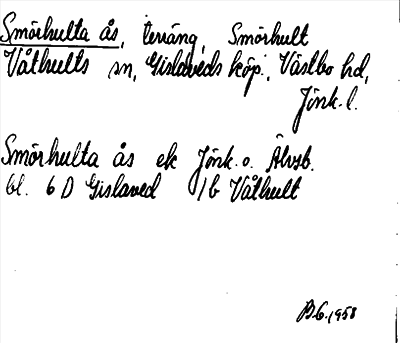 Smörhulta ås, teräng, Smörhult
Våthults sn, Gislaveds köp., Västbo hd,
Jönk. l.
Smörhulta ås ek Jönk. o. Älvsb.
bl. 6 D Gislaved 1b Våthult
B G. 1958